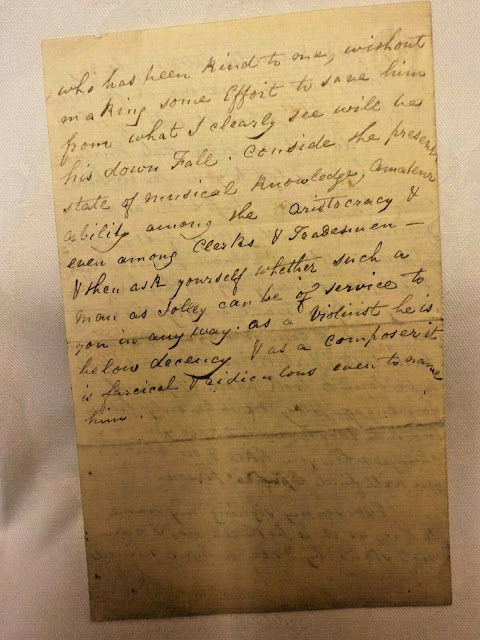 who has been kind to me, without
making some Effort to save him
from what I clearly see will be
his down Fall. Conside the present
state of musical knowledge, amateur
ability among the aristocracy &
even among Clerks & Tradesmen —
& then ask yourself whether such a
man as Jolley can be of service to
you in any way. as a Violinist he is
below decency & as a composer it
is farcical & ridiculous even to name
him.